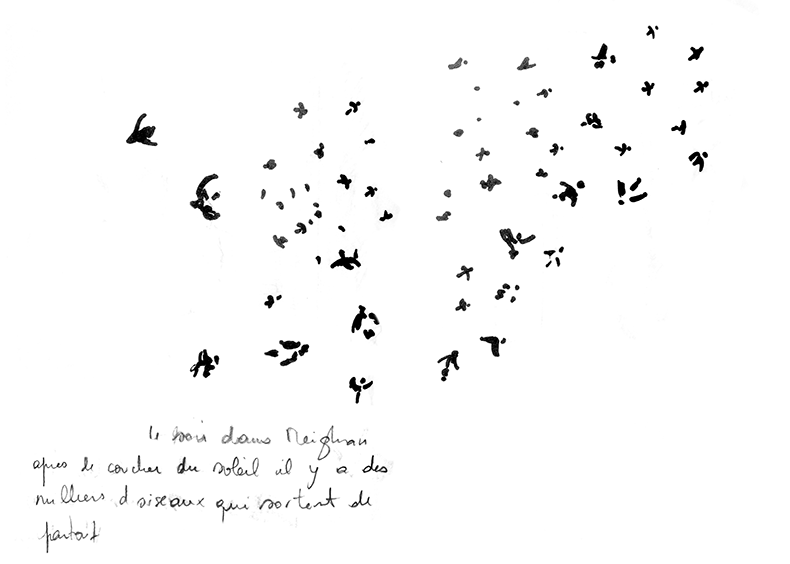 le soir dans Meighan
apres le coucher du soleil il y a des
milliers d oiseaux qui sortent de
partout